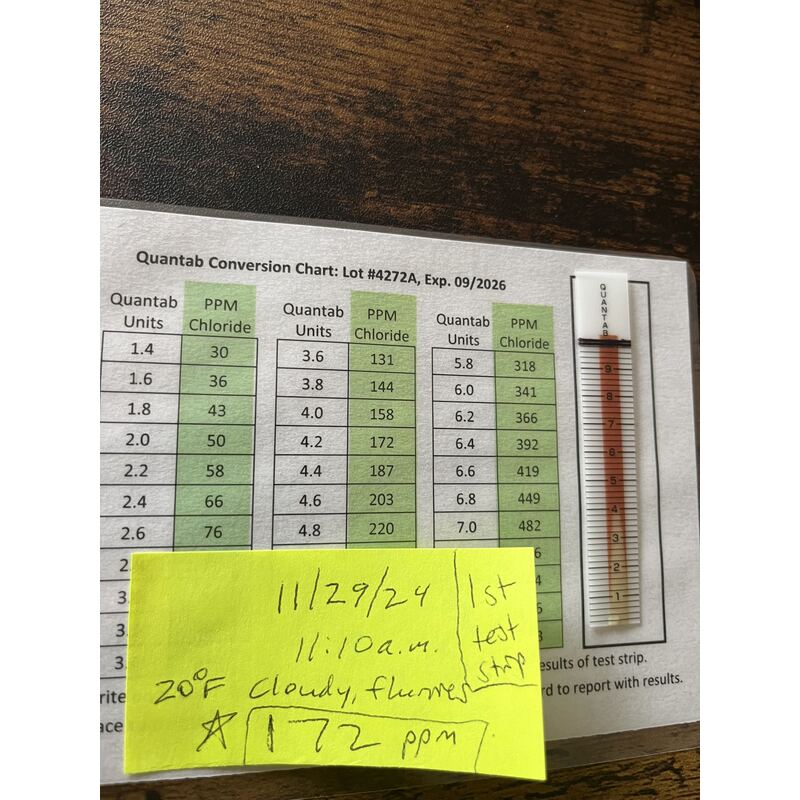 Quantab Conversion Chart: Lot #4272A, Exp. 09/2026
Quantab Units PPM Chloride
1.4 30
1.6 36
1.8 43
2.0 50
2.2 58
2.4 66
2.6 76
2.
3.
3.
3.
Quantab Units PPM Chloride
3.6 131
3.8 144
4.0 158
4.2 172
4.4 187
4.6 203
4.8 220
Quantab Units PPM Chloride
5.8 318
6.0 341
6.2 366
6.4 392
6.6 419
6.8 449
7.0 482
6
4
QUANTAB
9
8
7
6
5
4
3
2
1
results of test strip.
rd to report with results.
11/29/24
11:10 a.m.
20°F Cloudy, flurries
☆ 172 ppm
1st
test
strip